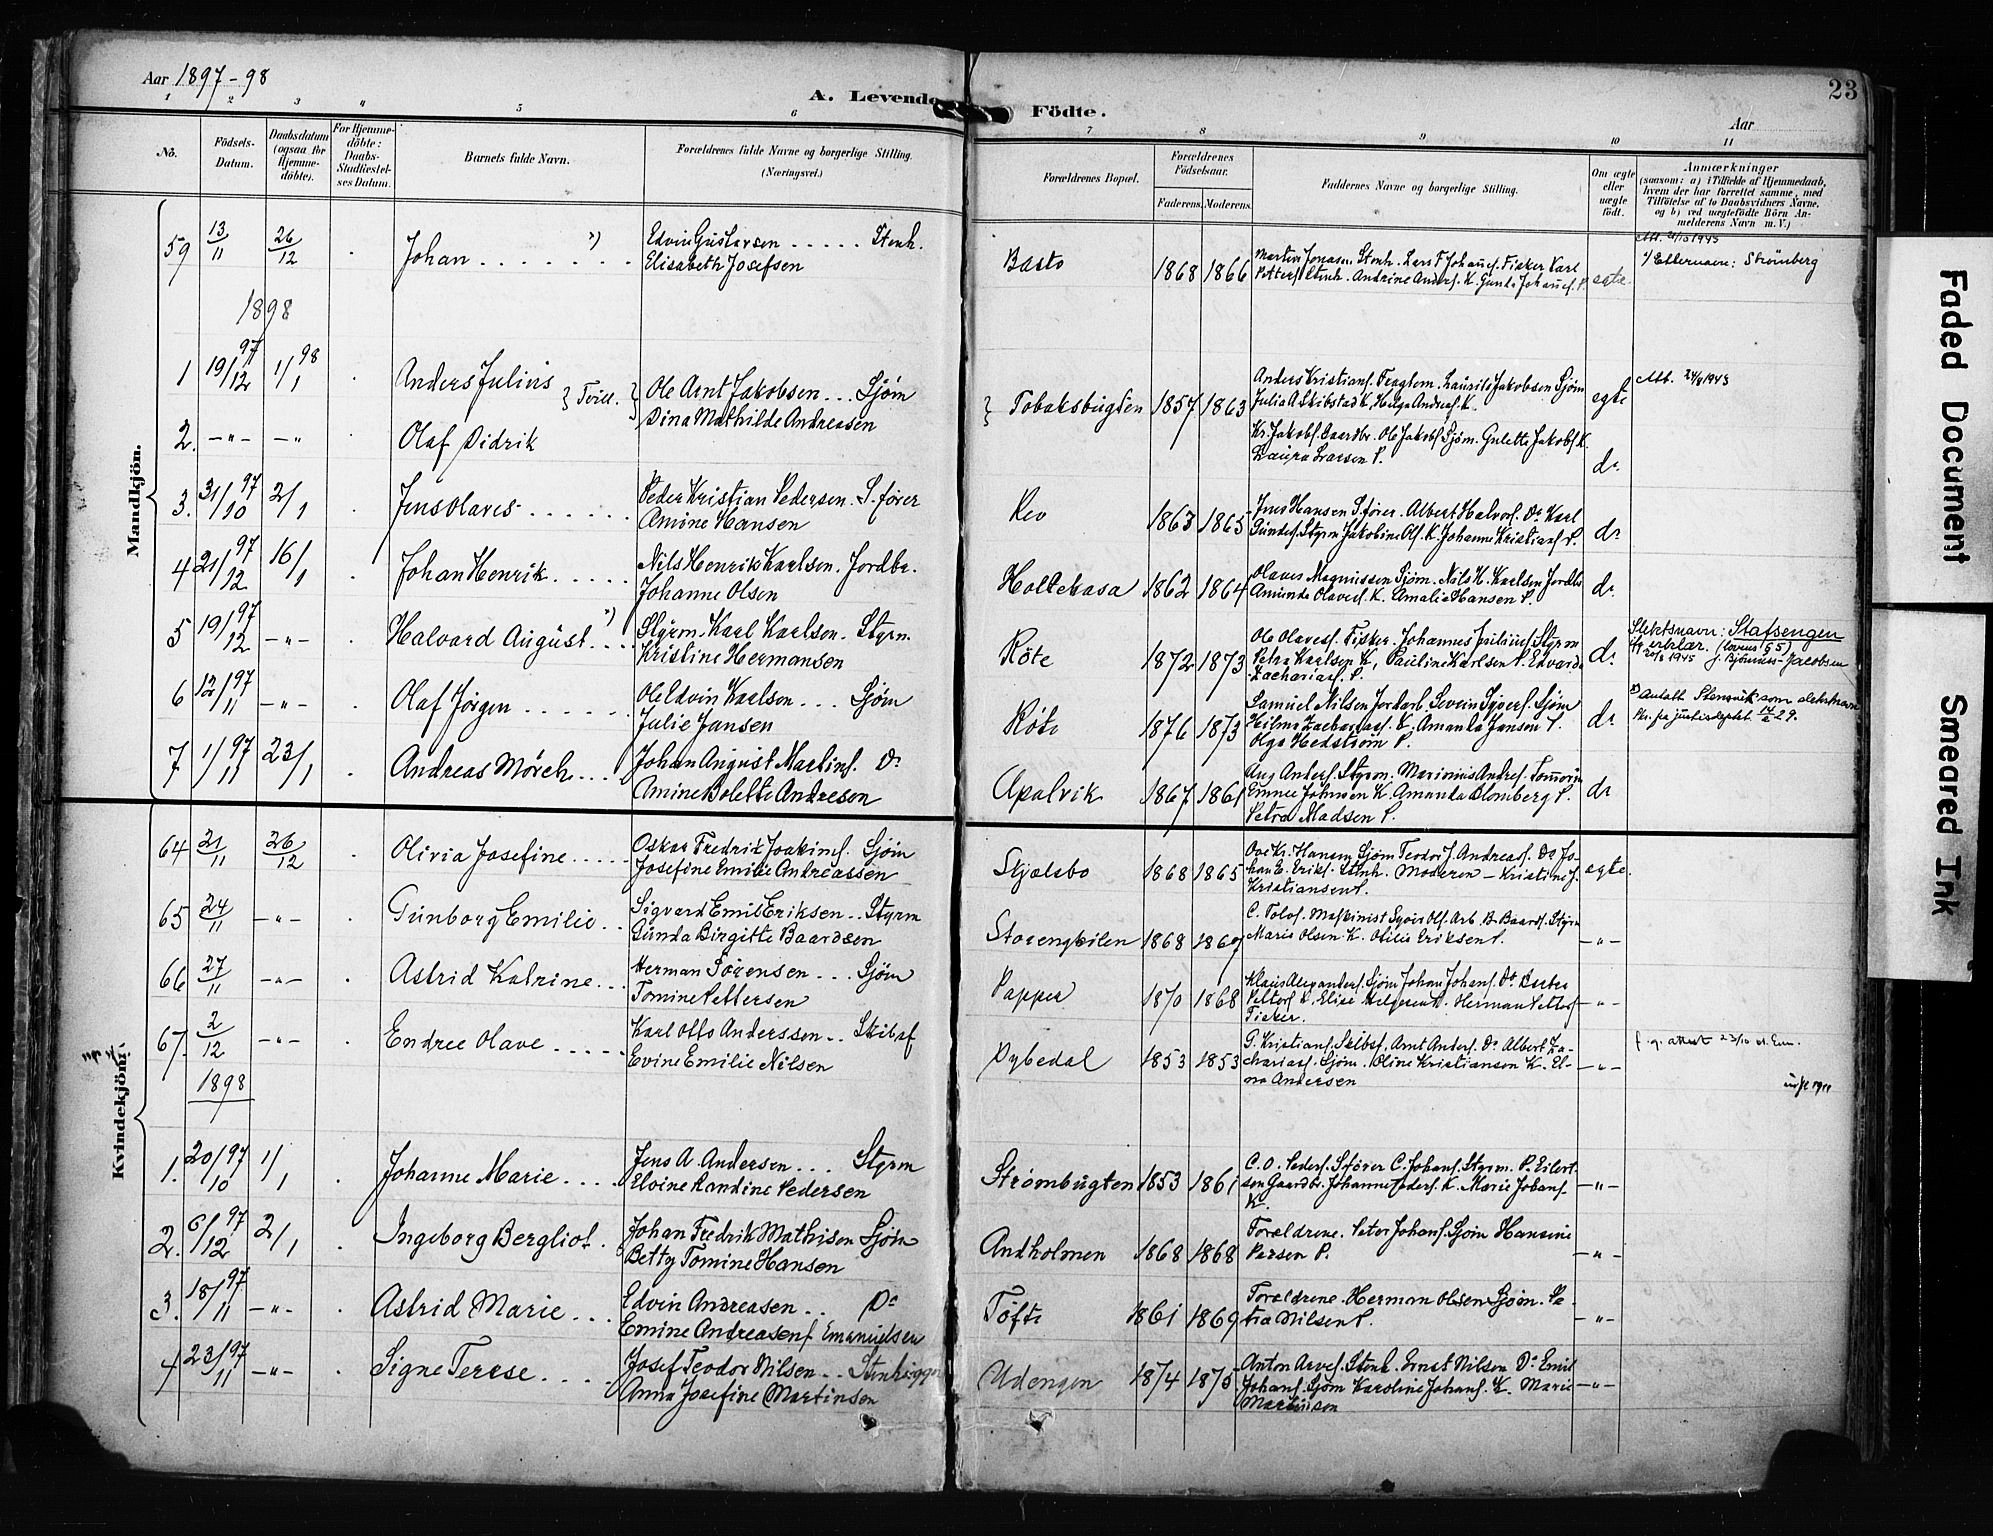 Aar 1897-98
A. Levende Födte.
23
Aar
1 2 3 4 5 6 7 8 9 10 11
No.
Födsels-Datum.
Daabsdatum (ogsaa for Hjemme-döbte).
For Hjemme-döbte: Daabs-Stadfæstel-ses Datum.
Barnets fulde Navn.
Forældrenes fulde Navne og borgerlige Stilling.
(Næringsvei.)
Forældrenes Bopæl.
Forældrenes Födselsaar.
Faderens. Moderens.
Faddernes Navne og borgerlige Stilling.
Om ægte eller uægte födt.
Anmærkninger
(saasom: a) i Tilfælde af Hjemmedaab,
hvem der har forrettet samme, med
Tilföielse af to Daabsvidners Navne.
og b) ved uægtefödte Börn An-
melderens Navn m. V.)
Mandkjön.
59 13/11 26/12 Johan . . . . Edvin Gustavsen . . . . . Stenh.
Elisabeth Josefsen
Basto 1868 1866
Stenh. Lars F Johans. Fisker Karl
Petters. Stenh. Andrine Anders. K. Gunda Johans. P. egte
Att. 21/10 1945
Etternavn: Strömberg
1898
1 19/12 97 1/1 98 Anders Julius } Tvill. } Ole Arnt Jakobsen . . . Sjöm
Dina Mathilde Andreasen
Tobaksbugten 1857 1863
Anders Kristians. Laurits Jakobsen Sjöm
Julia A Skibstad K, Helga Andreas. K. egte
Att. 24/9 1943
2. -"- -"- Olaf Didrik
Kr. Jakobs. Gaardbr. Ole Jakobs. Sjöm. Gulette Jakobs. K
Laura Larsen P. do
3. 31/10 97 2/1 Jens Olaves . . . . Peder Kristian Pedersen. S. förer
Amine Hansen
Rev 1863 1865
Jens Hansen S. förer. Albert Halvors. Do Karl
Gunders. Styrm Jakobine Ols. K. Johanne Kristians. P. do
4 21/12 97 16/1 Johan Henrik . . . . Nils Henrik Karlsen. Jordbr.
Johanne Olsen
Holtekasa 1862 1864
Olaves Magnussen Sjöm. Nils H. Karlsen Jordbr
Amunda Olaves. K. Amalie Hansen P. do
5 19/12 97 -"- Halvard August . . . Styrm. Karl Karlsen. Styrm
Kristine Hermansen
Röte 1872 1873
Ole Olaves. Fisker. Johannes Julius. Styrm
Petra Karlsen K, Pauline Karlsen P. Edvard
Zacharias. P. do
Slektsnavn: Stafsengen
erklær. (lovens § 5)
1945 Jacobsen
6 12/11 97 -"- Olaf Jörgen . . . . Ole Edvin Karlsen . . . Sjöm
Julie Jansen
Röte 1876 1873
Samuel Nilsen Jordarb. Severin Syvers. Sjöm
Hilma Zacharias. K. Amanda Jansen P.
Olga Hedström P. do
Antatt Stensvik som slektsnavn
29.
7 1/11 97 23/1 Andreas Mörch . . . Johan August Martins. Do
Amine Bolette Andresen
Apalvik 1867 1861
Aug Anders. Styrm. Marinius Andres. Tömmerm
Emnce Johnsen K. Amanda Blomberg P.
Petra Madsen P. do
Kvindekjön.
64 21/11 26/12 Olivia Josefine . . . . . Oskar Fredrik Joakims. Sjöm
Josefine Emilie Andreassen
Skjælsbo 1868 1865
Ove Kr. Hansen Sjöm Teodor J. Andreas. Do Jo-
han E. Eriks. Stenh. Moderen - Kristine J.
Kristiansen P. egte.
65 24/11 -"- Gunborg Emilie . . Sigvard Emil Eriksen . . Styrm
Gunda Birgitte Baardsen
Storengkilen 1868 1869
C. Tolof. Maskinist Syver Ols. Arb. B. Baards. Styrm
Marie Olsen K. Otilie Eriksen P. -"-
66 27/11 -"- Astrid Katrine . . . Herman Sörensen . . . Sjöm
Tomine Pettersen
Papper 1870 1868
Klaus Alexanders. Sjöm Johan Johans. Do
Petters. K. Elise Helgesen K. Herman Petters.
Fisker. -"-
67. 2/12 -"- Endree Olave . . . . . Karl Otto Anderssen . . Skibsf
Evine Emilie Nilsen
Dybedal 1853 1853
G. Kristians. Skibsf. Arnt Anders. Do Albert Za-
charias. Sjöm. Oline Kristiansen K. El-
ena Andersen -"-
f. g. attest 23/10
1898
1. 20/10 97 1/1 Johanne Marie . . . . Jens A. Andersen . . . Styrm
Elvine Randine Pedersen
Strömbugten 1853 1861
C. O. Peders. S. förer C. Johans. Styrm. P. Eilert-
sen Gaardbr. Johanne Peders. K. Marie Johans.
K. -"-
2. 6/12 97 2/1 Ingeborg Bergliot. Johan Fredrik Mathisen Sjöm
Betty Tomine Hansen
Andholmen 1868 1868
Foreldrene. Peter Johans. Sjöm Hansine
Larsen P. -"-
3. 18/11 97 -"- Astrid Marie . . . Edvin Andreasen . . Do
Emine Andreasen f Emanuelsen
Töfte 1861 1869
Foreldrene. Herman Olsen Sjöm. Pe-
tra Nilsen P. -"-
4 23/11 97 -"- Signe Terese . . . . Josef Teodor Nilsen . . Stenhugger
Anna Josefine Martinsen
Udengen 1874 1875
Anton Arves. Stenh. Ernst Nilsen Do Emil
Johans. Sjöm Karoline Johans. K. Marie
Martinsen -"-
Faded Document
Smeared Ink